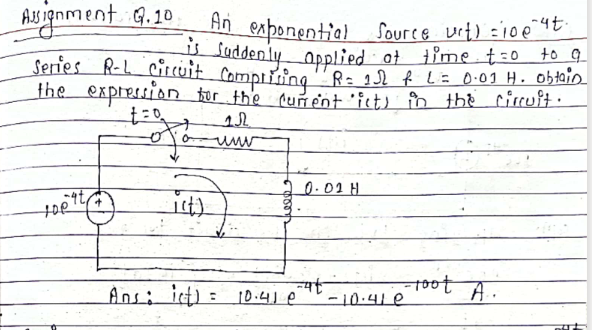 Assignment Q.10 An exponential source v(t) = 10e^-4t
is suddenly applied at time t=0 to a
series R-L circuit comprising R= 1Ω & L= 0.01 H. obtain
the expression for the current i(t) in the circuit.
t=0 1Ω
10e^-4t + i(t) 0.01 H
Ans: i(t) = 10.41 e^-4t - 10.41 e^-100t A.